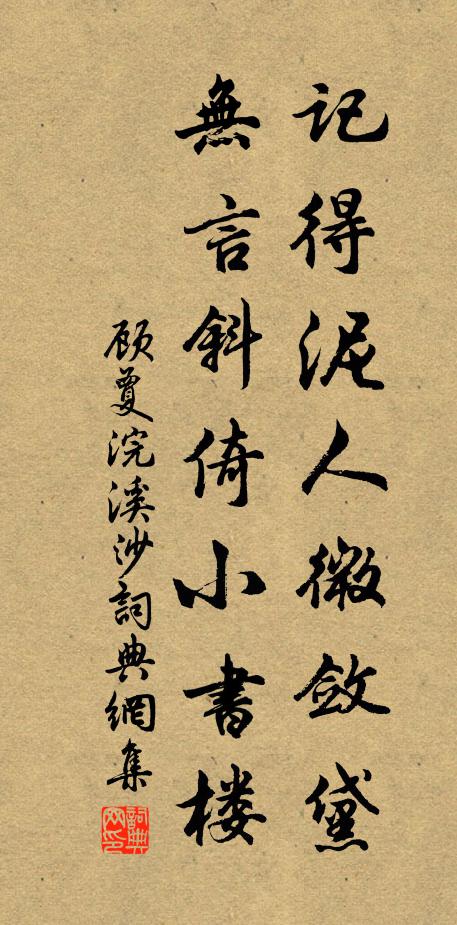 记得泥人微敛黛
無言斜倚小書楼
顾夐浣溪沙詞典網集
詞典网印